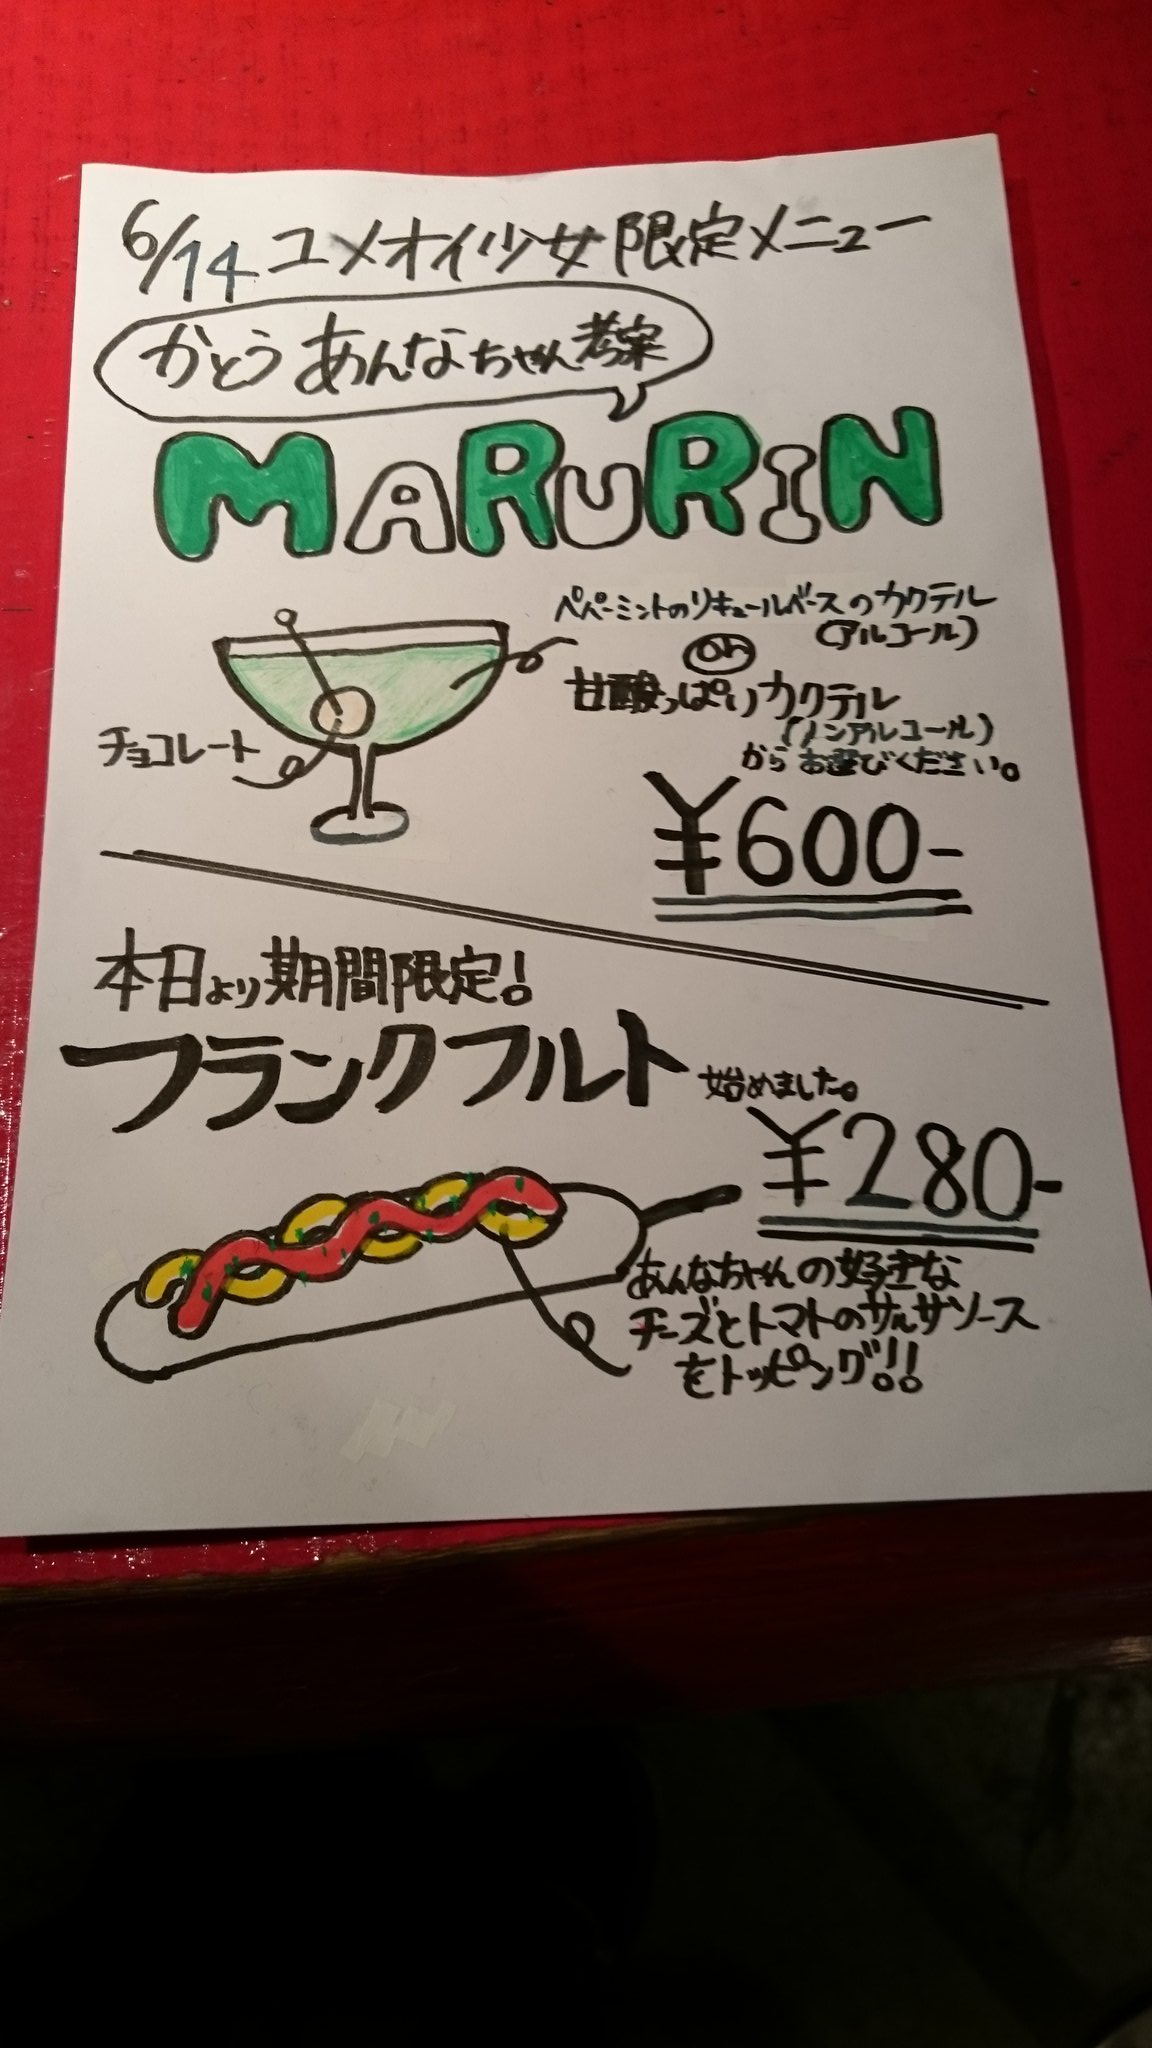 6/14 ユメオイ少女 限定メニュー
かとう あんなちゃん考案
MARURIN
ペパーミントのリキュールベースのカクテル
(アルコール)
or
甘酸っぱいカクテル
(ノンアルコール)
から お選びください。
チョコレート
¥600-
本日より期間限定!
フランクフルト 始めました。
¥280-
あんなちゃんの好きな
チーズとトマトのサルサソース
をトッピング!!